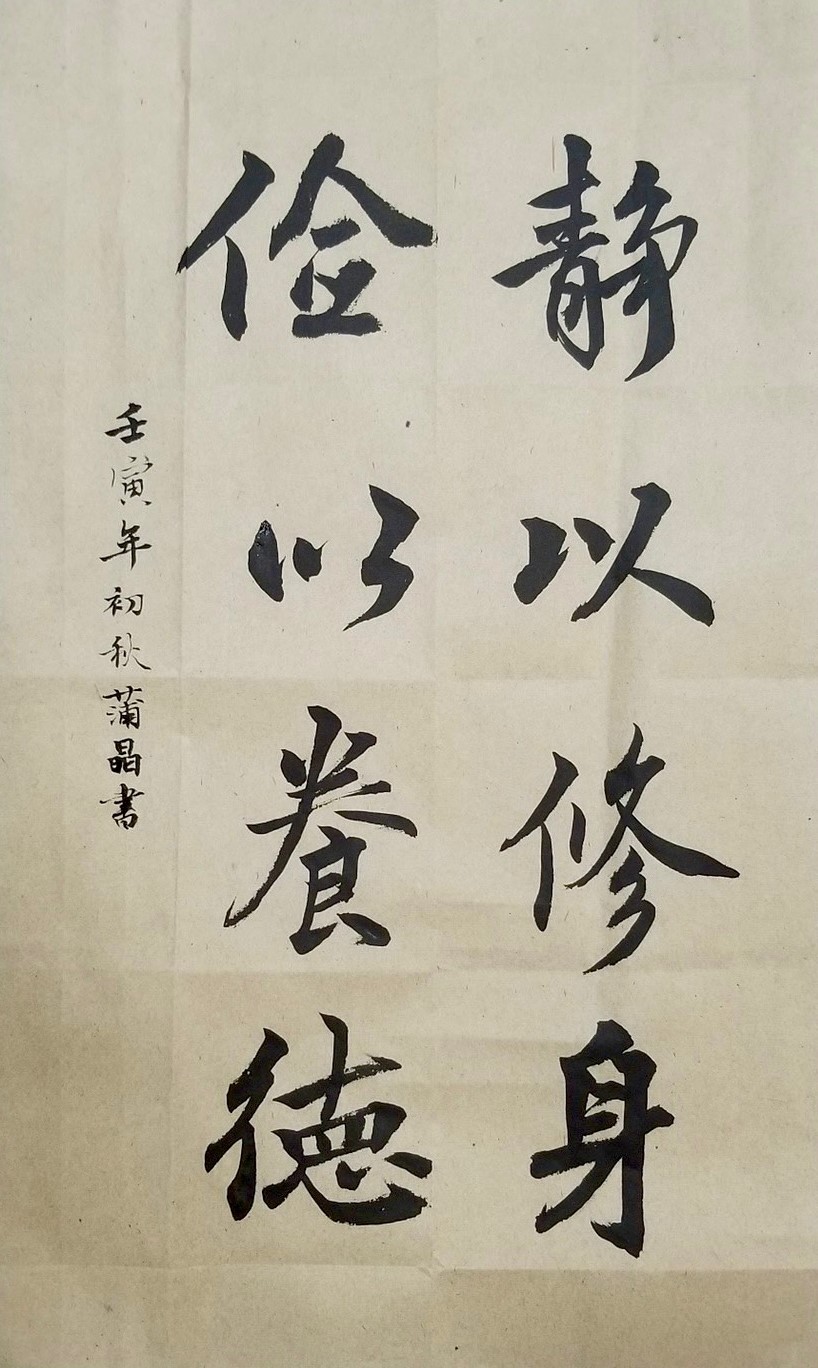 静以修身
俭以養德
壬寅年初秋蒲晶书